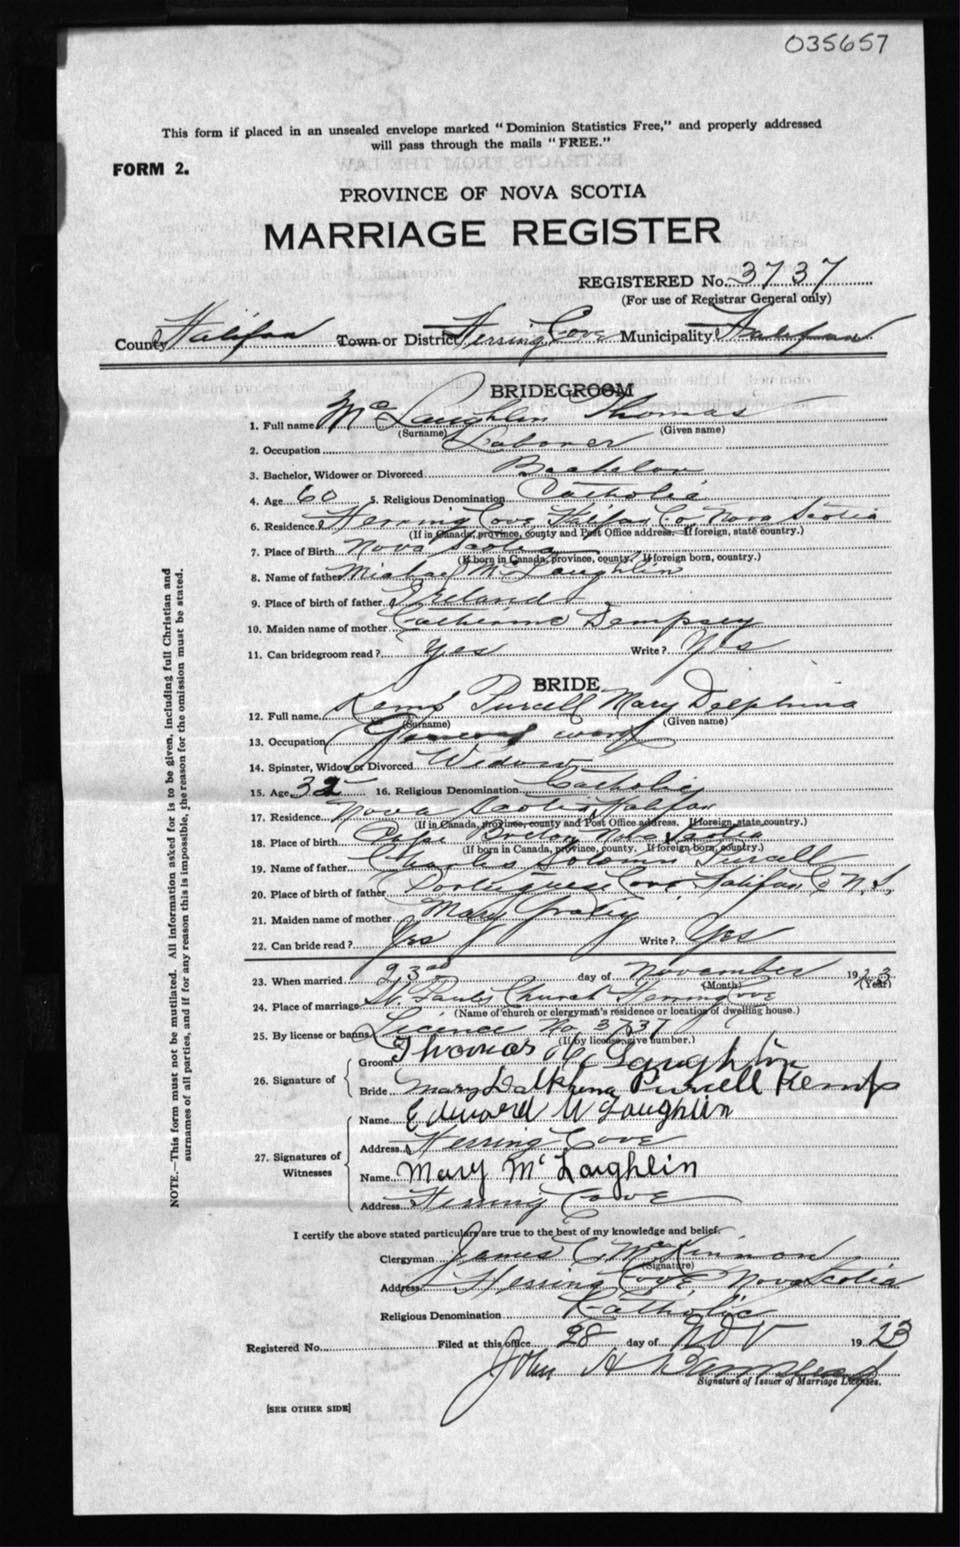 035657
This form if placed in an unsealed envelope marked "Dominion Statistics Free," and properly addressed
will pass through the mails "FREE."
FORM 2.
PROVINCE OF NOVA SCOTIA
MARRIAGE REGISTER
REGISTERED No. 3737
(For use of Registrar General only)
County Halifax Town or District Herring Cove Municipality Halifax
BRIDEGROOM
1. Full name McLaughlin Thomas
(Surname) (Given name)
2. Occupation Laborer
3. Bachelor, Widower or Divorced Bachelor
4. Age 60 5. Religious Denomination Catholic
6. Residence Herring Cove Hlifax Co. Nova Scotia
(If in Canada, province, county and Post Office address. If foreign, state country.)
7. Place of Birth Nova Scotia
(If born in Canada, province, county. If foreign born, country.)
8. Name of father Michael McLaughlin
9. Place of birth of father Ireland
10. Maiden name of mother Catherine Dempsey
11. Can bridegroom read? Yes Write? Yes
BRIDE
12. Full name Kemp Purcell Mary Delphina
(Surname) (Given name)
13. Occupation General work
14. Spinster, Widow or Divorced Widow
15. Age 32 16. Religious Denomination Catholic
17. Residence Nova Scotia Halifax
(If in Canada, province, county and Post Office address. If foreign, state country.)
18. Place of birth Cape Breton Nova Scotia
(If born in Canada, province, county. If foreign born, country.)
19. Name of father Charles Solomn Purcell
20. Place of birth of father Portuguese Cove Halifax Co N.S.
21. Maiden name of mother Mary
22. Can bride read? Yes Write? Yes
23. When married 23rd day of November 1923
(Month) (Year)
24. Place of marriage St. Pauls Church Herring Cove
(Name of church or clergyman's residence or location of dwelling house.)
25. By license or banns Licence No. 3737
(If by license, give number.)
26. Signature of
Groom Thomas Mc Laughlin
Bride Mary Dalkhena Purcell Kemp
27. Signatures of Witnesses
Name Edward McLaughlin
Address Herring Cove
Name Mary McLaughlin
Address Herring Cove
I certify the above stated particulars are true to the best of my knowledge and belief.
Clergyman James C. McKinnon
(Signature)
Address Herring Cove Nova Scotia
Religious Denomination Catholic
Registered No. Filed at this office 28 day of Nov 1923
John H
Signature of Issuer of Marriage Licenses.
[SEE OTHER SIDE]
NOTE.—This form must not be mutilated. All information asked for is to be given, including full Christian and
surnames of all parties, and if for any reason this is impossible, the reason for the omission must be stated.